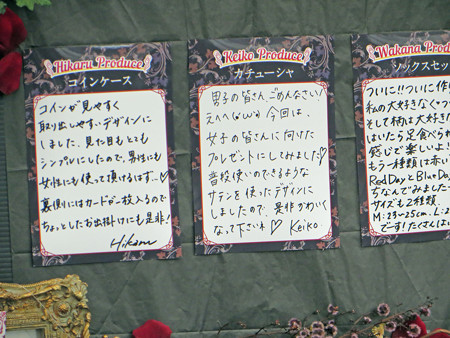 Hikaru Produce
コインケース
コインが見やすく
取り出しやすいデザインに
しました。見た目もとても
シンプルにしたので、男性にも
女性にも使って頂けるはず…♡
裏側にはカードが一枚入るので
ちょっとしたお出掛けにも是非!
Hikaru
Keiko Produce
カチューシャ
男子の皆さん、ごめんなさい!
えへへ(ω) 今回は、
女子の皆さんに向けた
プレゼントにしてみました♡
普段使いのできるような
サテンを使ったデザインに
しましたので、是非かわいく
なって下さいね♡ Keiko
Wakana Produ
ソックスセッ
ついに!!ついに作り
私の大好きなくつ
そして柄は大好き
はいたら足食べられ
感じで楽しいよ!
もう一種類は赤い
Red DayとBlue Da
ちなんでみました
サイズも2種類
M:23~25cm、L:2
でーす!たくさんは